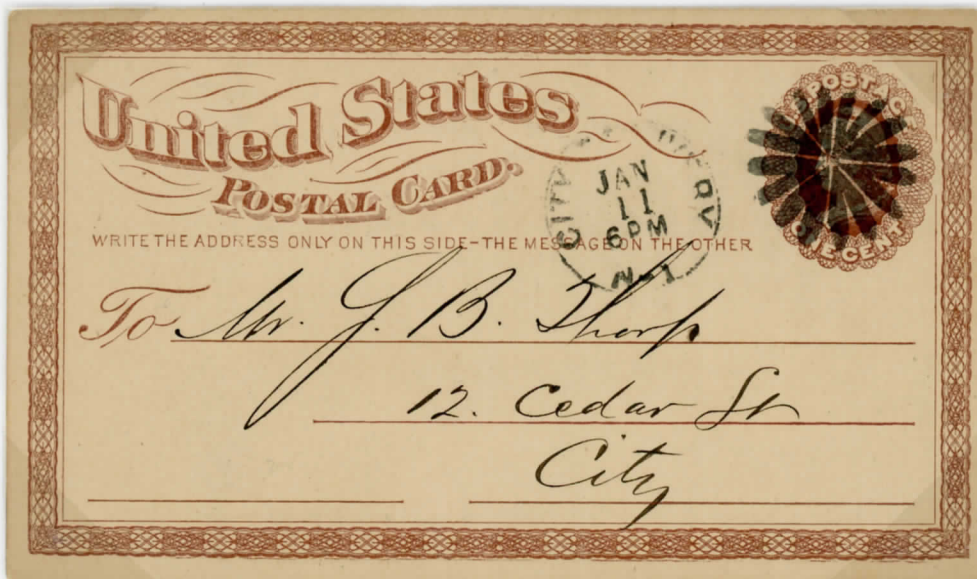 United States
POSTAL CARD.
U.S. POSTAGE
ONE CENT
CITY DELIVERY
JAN
11
6 PM
N.Y.
WRITE THE ADDRESS ONLY ON THIS SIDE-THE MESSAGE ON THE OTHER
To Mr. J. B. Thorp
12. Cedar St
City